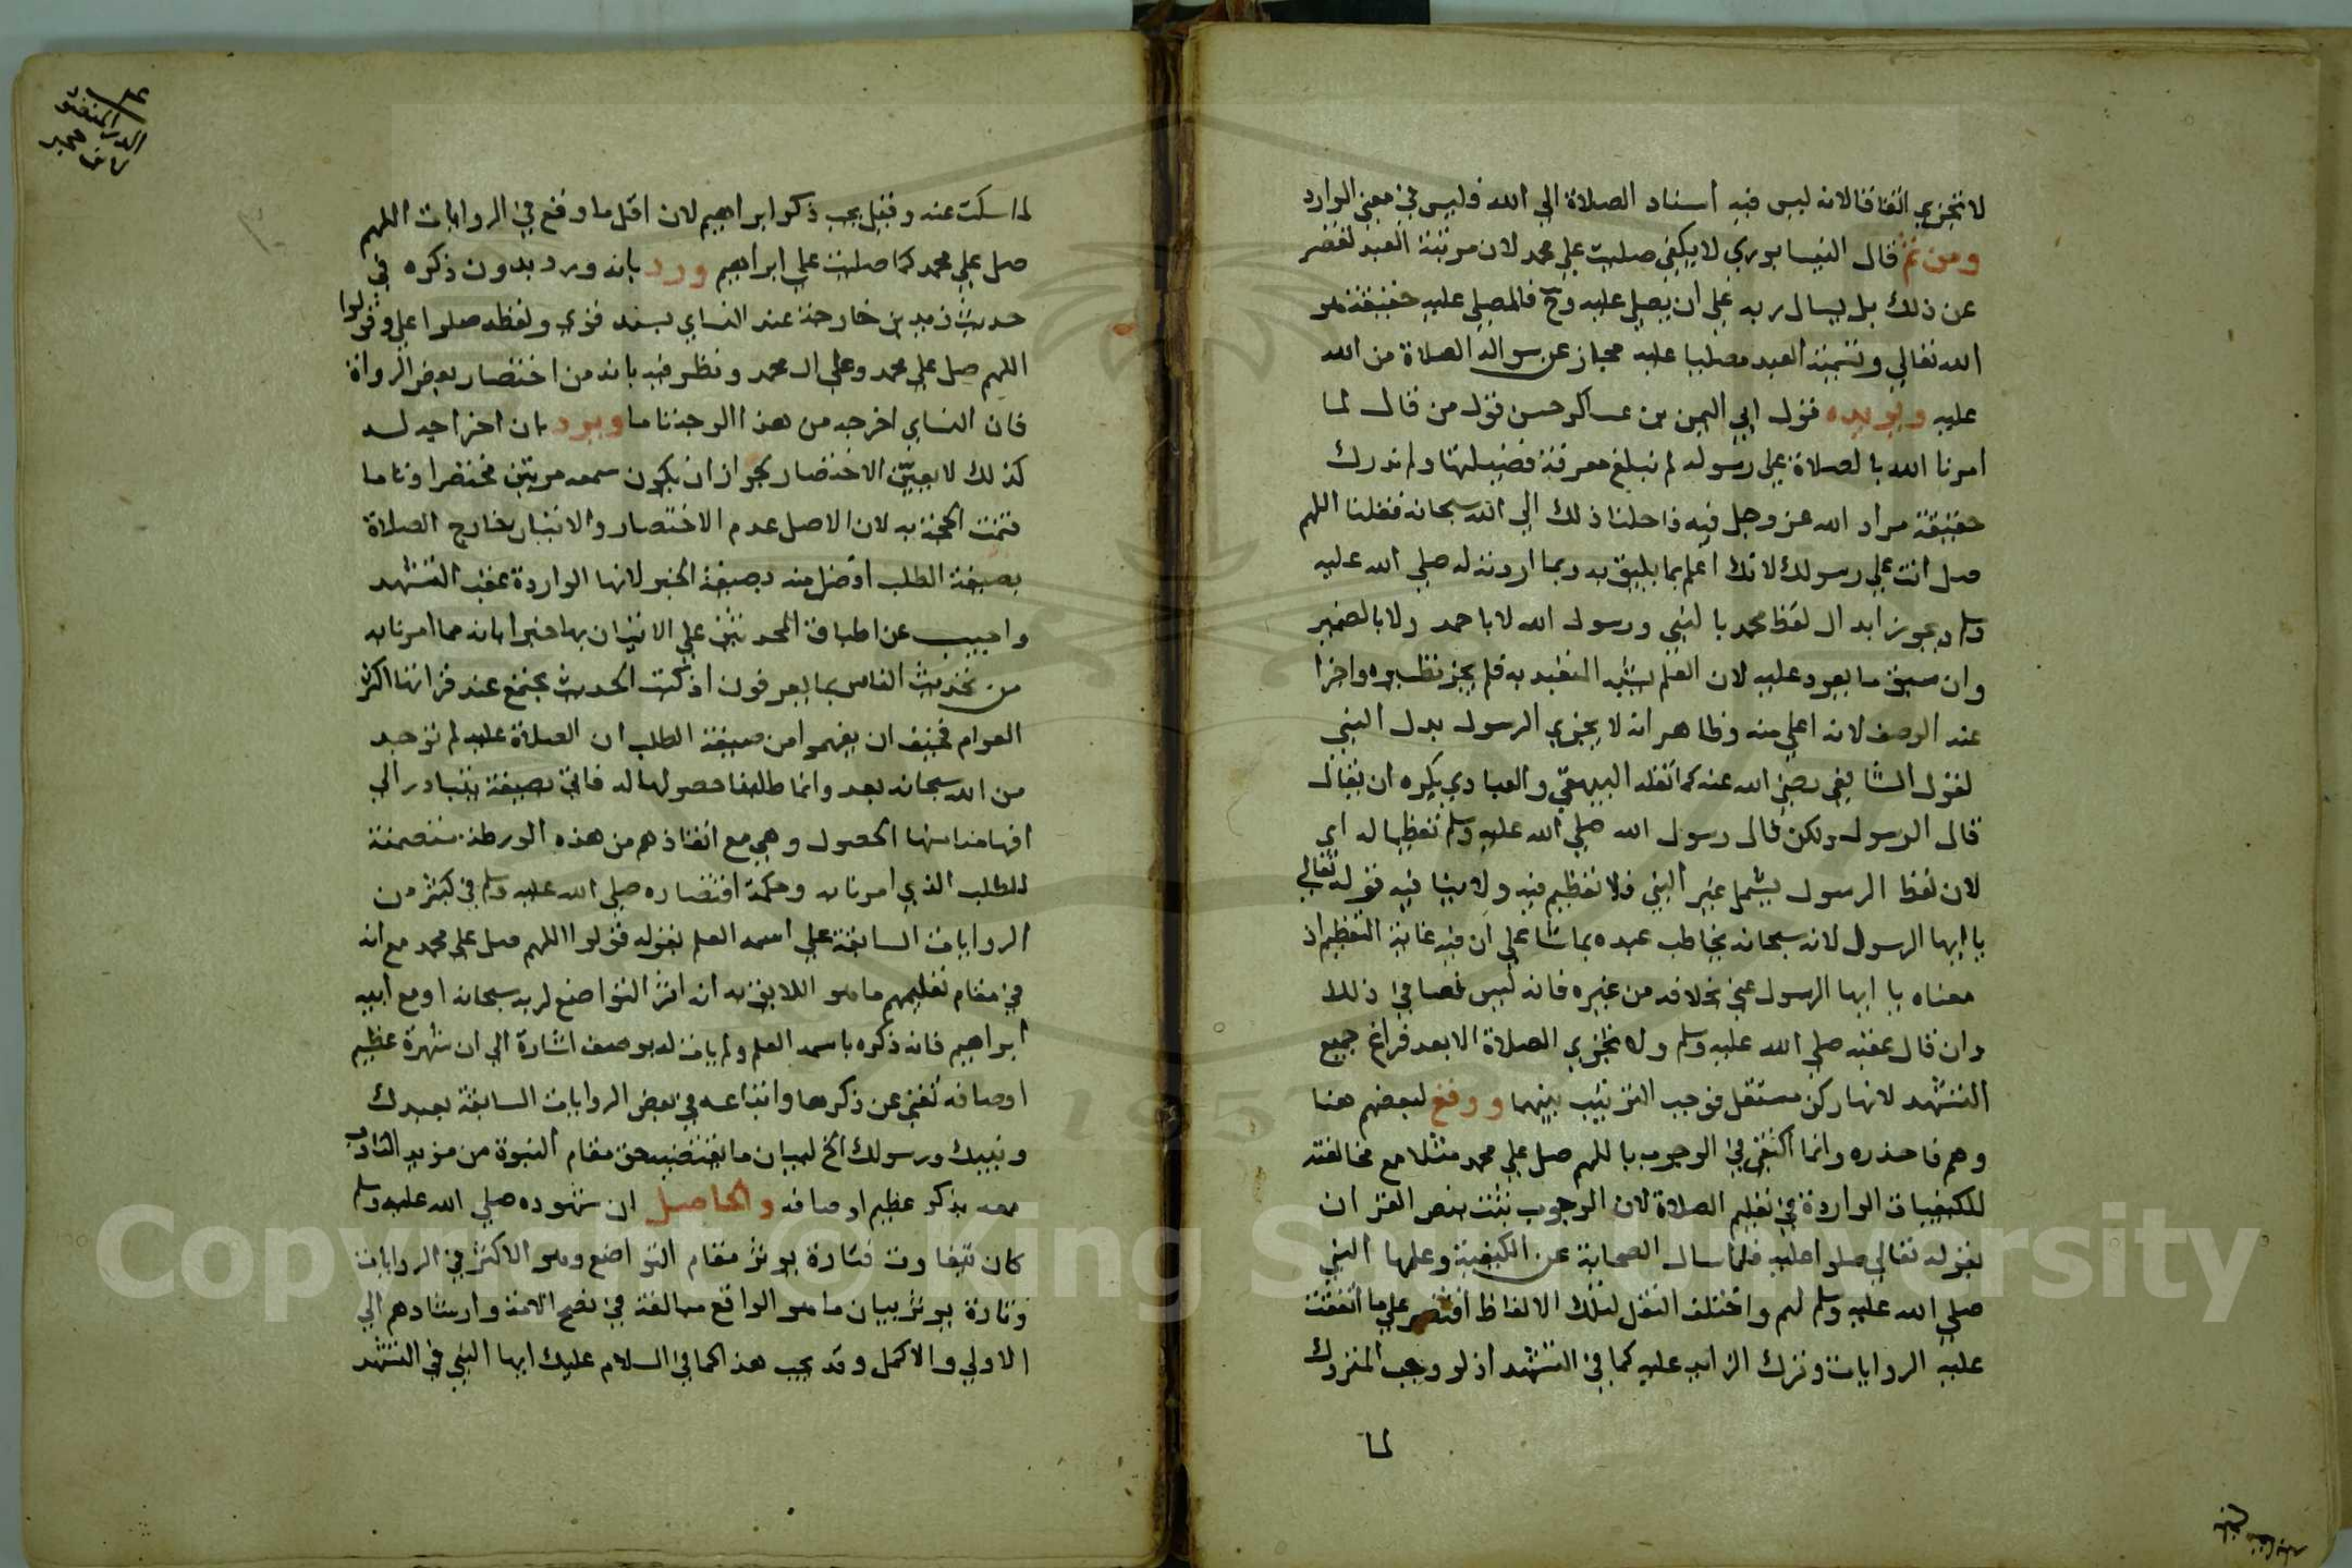 لا تجزي اتفاقا لانه ليس فيه اسناد الصلاة الي الله فليس في معني الوارد
ومن ثم قال النيسابوري لا يكفي صليت علي محمد لان مرتبة العبد تقصر
عن ذلك بل يسال ربه علي ان يصلي عليه وح فالمصلي عليه حقيقة هو
الله تعالي وتسمية العبد مصليا عليه مجاز عن سواله الصلاة من الله
عليه ويويده قول ابي اليمن بن عساكر حسن قول من قال لما
امرنا الله بالصلاة علي رسوله لم نبلغ معرفة فضيلتها ولم ندرك
حقيقة مراد الله عز وجل فيه فاحلنا ذلك الي الله سبحانه فقلنا اللهم
صل انت علي رسولك لانك اعلم بما يليق به وبما اردته له صلي الله عليه
وسلم ويجوز ابدال لفظ محمد بالنبي ورسول الله لا باحمد ولا بالضمير
وان سبق ما يعود عليه لان العلم يشبه المتعبد به فلم يجز نظيره واجزا
عند الوصف لانه اعلي منه وظاهر انه لا يجزي الرسول بدل النبي
لقول الشافعي رضي الله عنه كما نقله البيهقي والعبادي يكره ان يقال
قال الرسول ولكن قال رسول الله صلي الله عليه وسلم تعظيما له اي
لان لفظ الرسول يشمل غير النبي فلا تعظيم فيه ولا ينافيه قوله تعالي
يا ايها الرسول لانه سبحانه يخاطب عبده بما شا علي ان فيه غاية التعظيم اذ
معناه يا ايها الرسول عني بخلافه من غيره فانه ليس نصا في ذلك
وان قال عقبه صلي الله عليه وسلم ولا تجزي الصلاة الا بعد فراغ جميع
التشهد لانها ركن مستقل فوجب الترتيب بينهما ووقع لبعضهم هنا
وهم فاحذره وانما اكتفي في الوجوب باللهم صل علي محمد مثلا مع مخالفته
للكيفيات الواردة في تعليم الصلاة لان الوجوب ثبت بنص القران
بقوله تعالي صلوا عليه فلما سال الصحابة عن الكيفية وعلمها النبي
صلي الله عليه وسلم لهم واختلف النقل لتلك الالفاظ اقتصر علي ما اتفقت
عليه الروايات وترك الزايد عليه كما في التشهد اذ لو وجب المتروك
لما
لما سكت عنه وقيل يجب ذكر ابراهيم لان اقل ما وقع في الروايات اللهم
صل علي محمد كما صليت علي ابراهيم ورد بانه ورد بدون ذكره في
حديث زيد بن خارجة عند النساي بسند قوي ولفظه صلوا علي وقولوا
اللهم صل علي محمد وعلي ال محمد ونظر فيه بانه من اختصار بعض الرواة
فان النساي اخرجه من هذا الوجه تاما ويرد بان اخراجه له
كذلك لا يعين الاختصار لجواز ان يكون سمعه مرتين مختصرا وتاما
فتمت الحجة به لان الاصل عدم الاختصار والاتيان خارج الصلاة
بصيغة الطلب افضل منه بصيغة الخبر لانها الواردة عقب التشهد
واجيب عن اطباق المحدثين علي الاتيان بها خبرا بانه مما امرنا به
من تحديث الناس بما يعرفون اذ كتب الحديث يجتمع عند قراتها اكثر
العوام فخيف ان يفهموا من صيغة الطلب ان الصلاة عليه لم توجد
من الله سبحانه بعد وانما طلبنا حصولها له فاتي بصيغة يتبادر الي
افهامنا منها الحصول وهي مع انقاذهم من هذه الورطة متضمنة
للطلب الذي امرنا به وحكمة اقتصاره صلي الله عليه وسلم في كثير من
الروايات السابقة علي اسمه العلم بقوله قولوا اللهم صل علي محمد مع انه
في مقام تعليمهم ما هو اللايق به انه اثر التواضع لربه سبحانه او مع ابيه
ابراهيم فانه ذكره باسمه العلم ولم يات له بوصف اشارة الي ان شهرة عظيم
اوصافه تغني عن ذكرها واتباعه في بعض الروايات السابقة بعبدك
ونبيك ورسولك الخ لبيان ما يقتضيه حق مقام النبوة من مزيد التادب
معه بذكر عظيم اوصافه والحاصل ان شهوده صلي الله عليه وسلم
كان يتفاوت فتارة يوثر مقام التواضع وهو الاكثر في الروايات
وتارة يوثر بيان ما هو الواقع مبالغة في نصح الامة وارشادهم الي
الاولي والاكمل وقد يجب هذا كما في السلام عليك ايها النبي في التشهد
Copyright © King Saud University
195